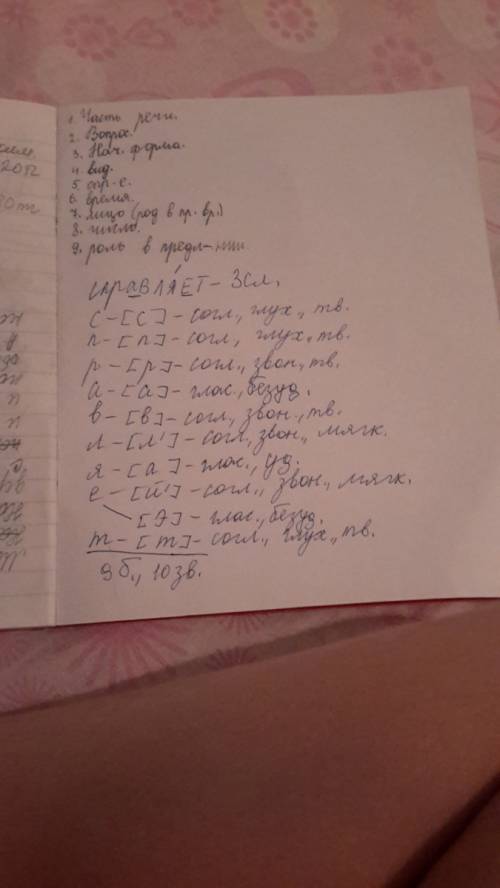 1. Часть речи.
2. Вопрос.
3. Нач. форма.
4. вид.
5. спр-е.
6. время.
7. лицо (род в пр. вр.)
8. число.
9. роль в предл-нии.
СПРАВЛЯ́ЕТ - 3 сл.
с - [с] - согл., глух., тв.
п - [п] - согл., глух., тв.
р - [р] - согл., звон., тв.
а - [а] - глас., безуд.
в - [в] - согл., звон., тв.
л - [л'] - согл., звон., мягк.
я - [а] - глас., уд.
е - [й'] - согл., звон., мягк.
[э] - глас., безуд.
т - [т] - согл., глух., тв.
9 б., 10 зв.